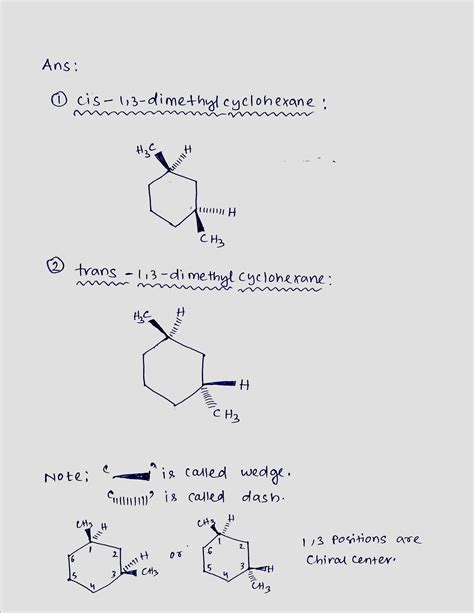 Ans:
① cis-1,3-dimethylcyclohexane:
H3C H
H
CH3
② trans-1,3-dimethyl cyclohexane:
H3C H
H
CH3
Note; is called wedge.
is called dash.
CH3 H
1
6 2
5 3
4
H
CH3
or
CH3 H
1
6 2
5 3
4
H
CH3
1,3 positions are
Chiral center.